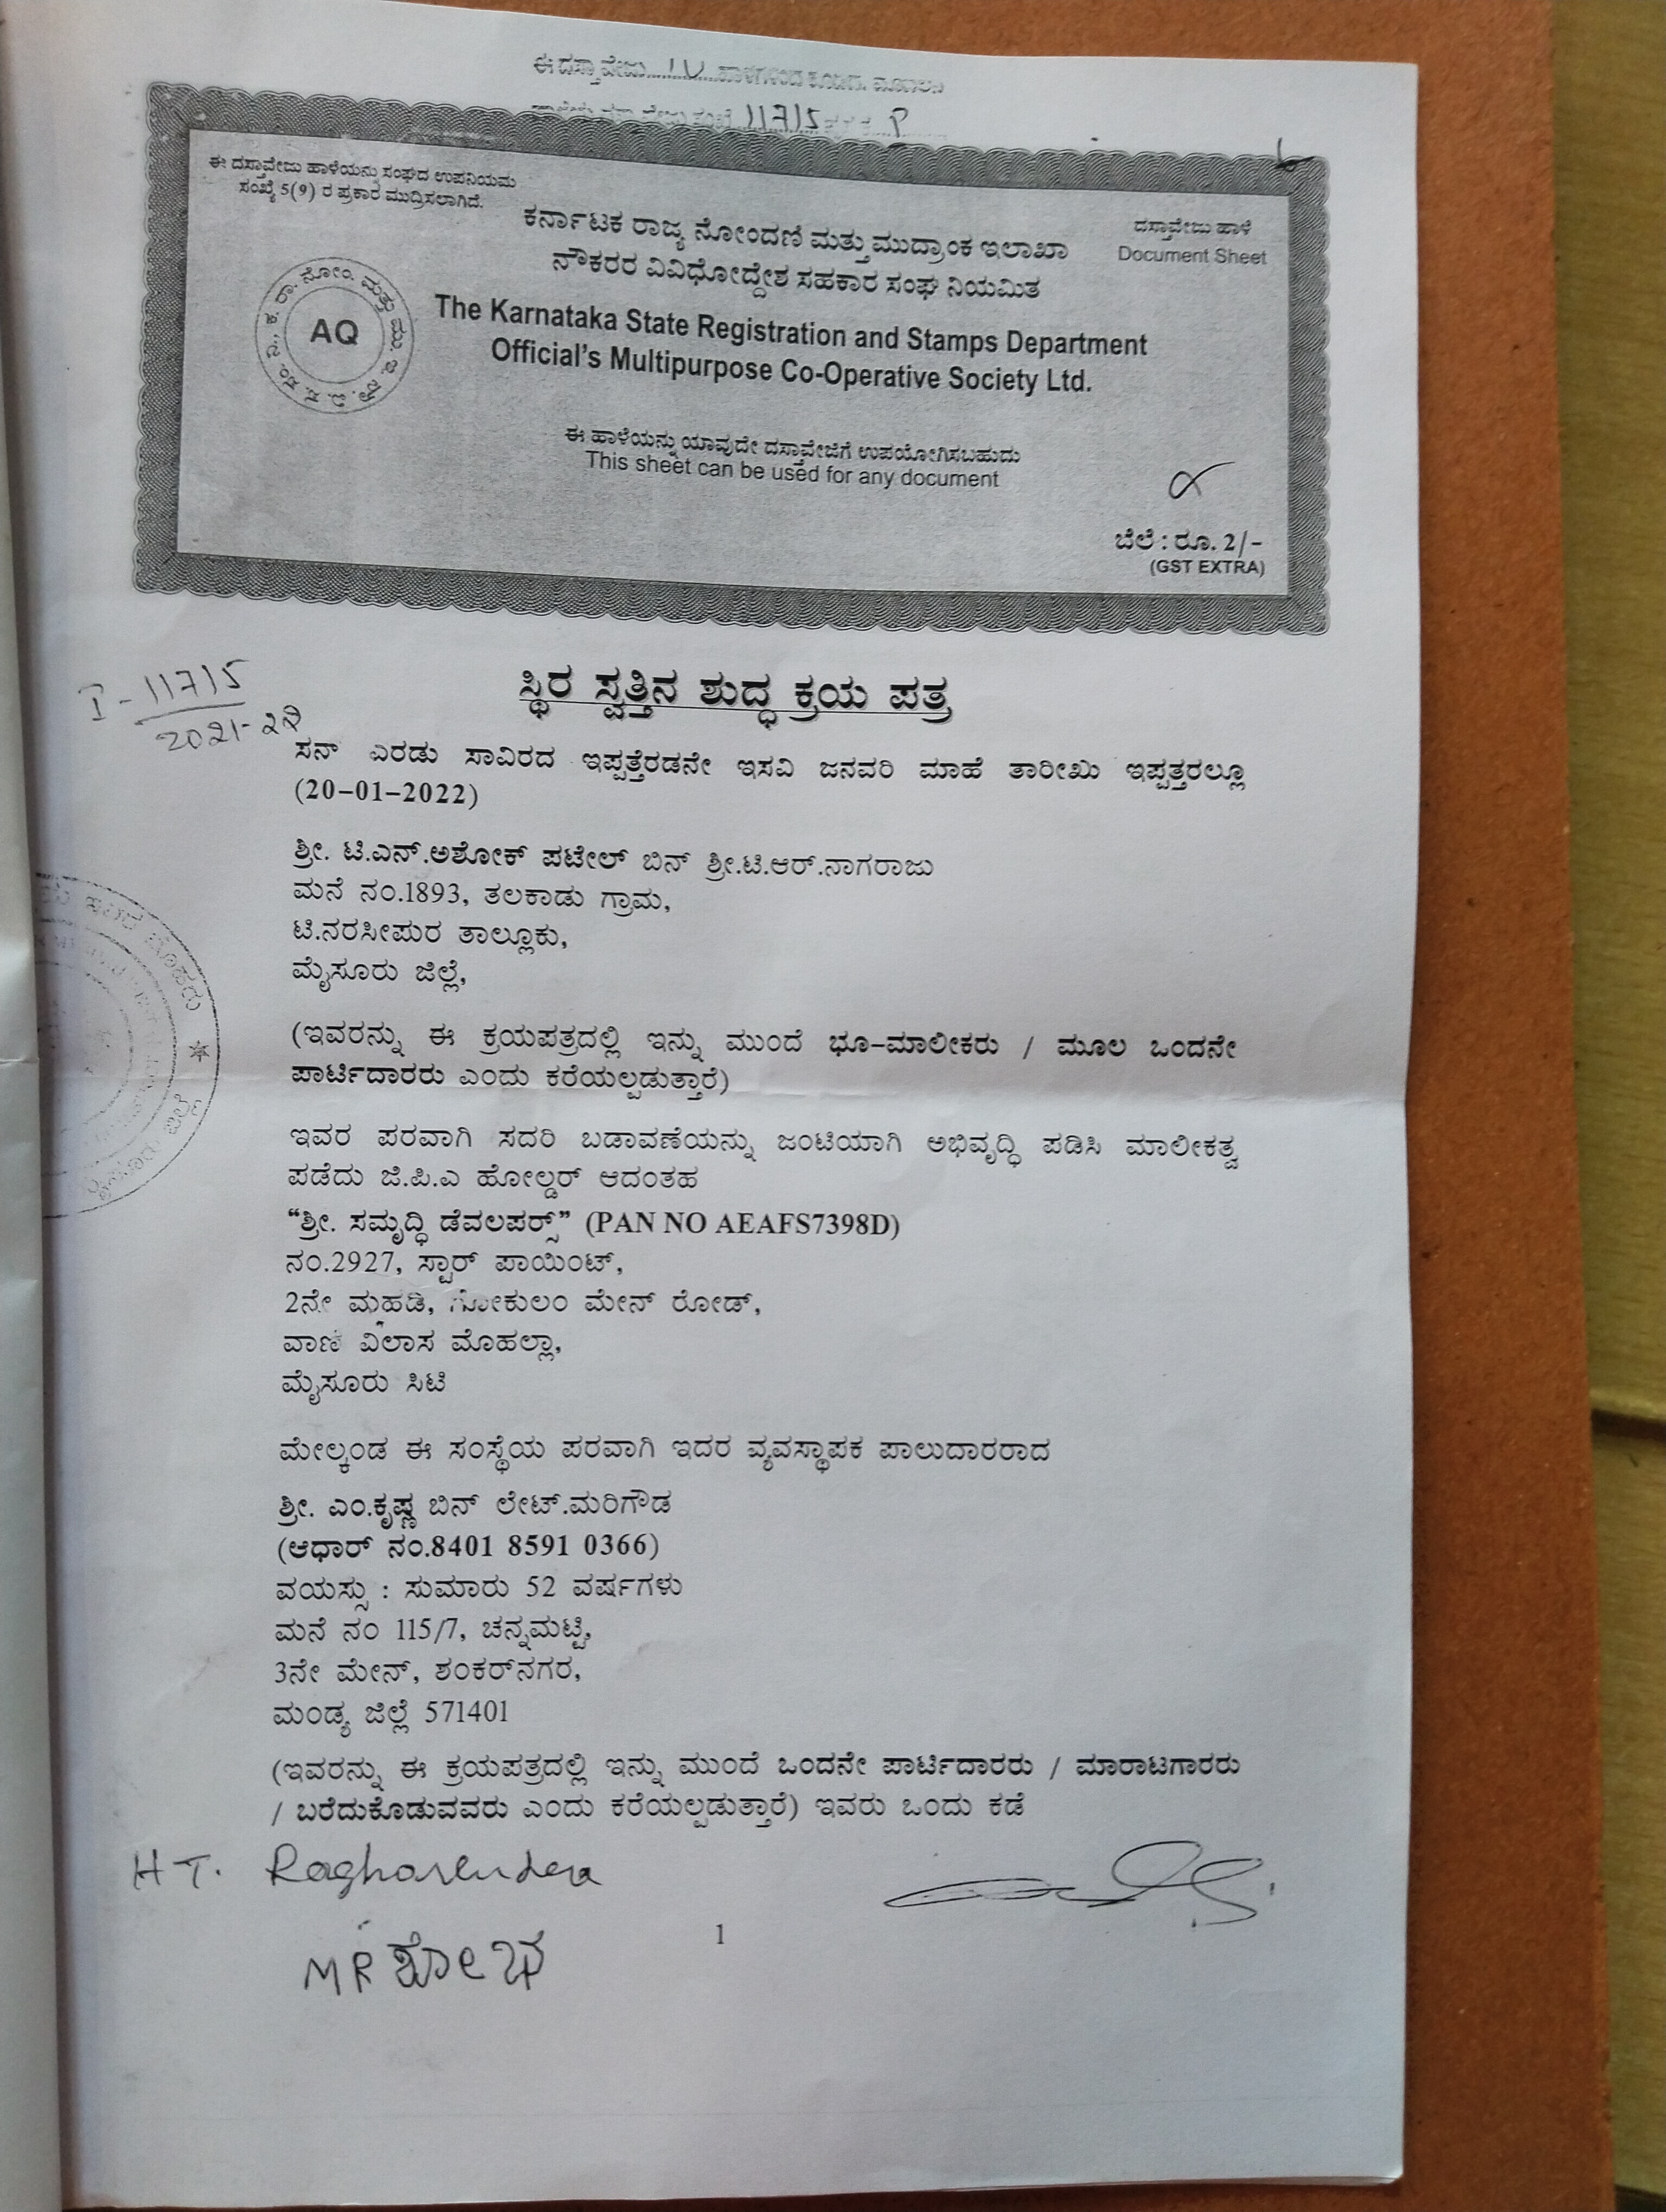 ಈ ದಸ್ತಾವೇಜು
11715
ಈ ದಸ್ತಾವೇಜು ಹಾಳೆಯನ್ನು ಸಂಘದ ಉಪನಿಯಮ
ಸಂಖ್ಯೆ 5(9) ರ ಪ್ರಕಾರ ಮುದ್ರಿಸಲಾಗಿದೆ.
ದಸ್ತಾವೇಜು ಹಾಳೆ
Document Sheet
ಕರ್ನಾಟಕ ರಾಜ್ಯ ನೋಂದಣಿ ಮತ್ತು ಮುದ್ರಾಂಕ ಇಲಾಖಾ
ನೌಕರರ ವಿವಿಧೋದ್ದೇಶ ಸಹಕಾರ ಸಂಘ ನಿಯಮಿತ
AQ
The Karnataka State Registration and Stamps Department
Official's Multipurpose Co-Operative Society Ltd.
ಈ ಹಾಳೆಯನ್ನು ಯಾವುದೇ ದಸ್ತಾವೇಜಿಗೆ ಉಪಯೋಗಿಸಬಹುದು
This sheet can be used for any document
ಬೆಲೆ : ರೂ. 2/-
(GST EXTRA)
I - 11715
2021-22
ಸ್ಥಿರ ಸ್ವತ್ತಿನ ಶುದ್ಧ ಕ್ರಯ ಪತ್ರ
ಸನ್ ಎರಡು ಸಾವಿರದ ಇಪ್ಪತ್ತೆರಡನೇ ಇಸವಿ ಜನವರಿ ಮಾಹೆ ತಾರೀಖು ಇಪ್ಪತ್ತರಲ್ಲೂ
(20-01-2022)
ಶ್ರೀ. ಟಿ.ಎನ್.ಅಶೋಕ್ ಪಟೇಲ್ ಬಿನ್ ಶ್ರೀ.ಟಿ.ಆರ್.ನಾಗರಾಜು
ಮನೆ ನಂ.1893, ತಲಕಾಡು ಗ್ರಾಮ,
ಟಿ.ನರಸೀಪುರ ತಾಲ್ಲೂಕು,
ಮೈಸೂರು ಜಿಲ್ಲೆ,
(ಇವರನ್ನು ಈ ಕ್ರಯಪತ್ರದಲ್ಲಿ ಇನ್ನು ಮುಂದೆ ಭೂ-ಮಾಲೀಕರು / ಮೂಲ ಒಂದನೇ
ಪಾರ್ಟಿದಾರರು ಎಂದು ಕರೆಯಲ್ಪಡುತ್ತಾರೆ)
ಇವರ ಪರವಾಗಿ ಸದರಿ ಬಡಾವಣೆಯನ್ನು ಜಂಟಿಯಾಗಿ ಅಭಿವೃದ್ಧಿ ಪಡಿಸಿ ಮಾಲೀಕತ್ವ
ಪಡೆದು ಜಿ.ಪಿ.ಎ ಹೋಲ್ಡರ್ ಆದಂತಹ
“ಶ್ರೀ. ಸಮೃದ್ಧಿ ಡೆವಲಪರ್ಸ್” (PAN NO AEAFS7398D)
ನಂ.2927, ಸ್ಟಾರ್ ಪಾಯಿಂಟ್,
2ನೇ ಮಹಡಿ, ಗೋಕುಲಂ ಮೇನ್ ರೋಡ್,
ವಾಣಿ ವಿಲಾಸ ಮೊಹಲ್ಲಾ,
ಮೈಸೂರು ಸಿಟಿ
ಮೇಲ್ಕಂಡ ಈ ಸಂಸ್ಥೆಯ ಪರವಾಗಿ ಇದರ ವ್ಯವಸ್ಥಾಪಕ ಪಾಲುದಾರರಾದ
ಶ್ರೀ. ಎಂ.ಕೃಷ್ಣ ಬಿನ್ ಲೇಟ್.ಮರಿಗೌಡ
(ಆಧಾರ್ ನಂ.8401 8591 0366)
ವಯಸ್ಸು : ಸುಮಾರು 52 ವರ್ಷಗಳು
ಮನೆ ನಂ 115/7, ಚನ್ನಮಟ್ಟಿ,
3ನೇ ಮೇನ್, ಶಂಕರ್‌ನಗರ,
ಮಂಡ್ಯ ಜಿಲ್ಲೆ 571401
(ಇವರನ್ನು ಈ ಕ್ರಯಪತ್ರದಲ್ಲಿ ಇನ್ನು ಮುಂದೆ ಒಂದನೇ ಪಾರ್ಟಿದಾರರು / ಮಾರಾಟಗಾರರು
/ ಬರೆದುಕೊಡುವವರು ಎಂದು ಕರೆಯಲ್ಪಡುತ್ತಾರೆ) ಇವರು ಒಂದು ಕಡೆ
H T. Raghavendra
1
M R ಶೋಭ